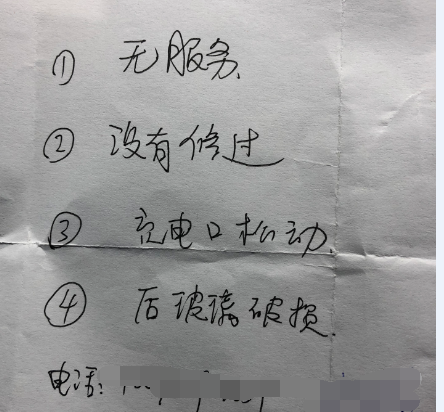 ① 无服务
② 没有修过
③ 充电口松动
④ 后玻璃破损.
电话: